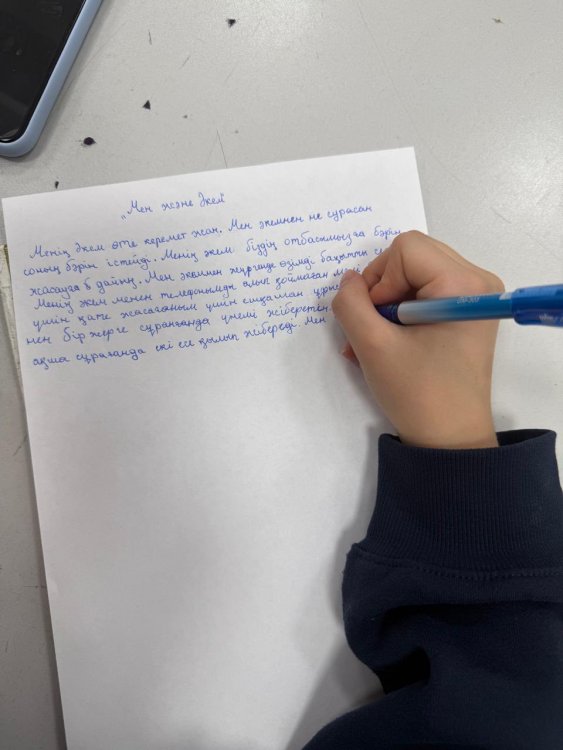 „Мен және Әкем"
Менің Әкем өте керемет жан. Мен әкемнен не сұрасам
соның бәрін істейді. Менің әкем біздің отбасымызға бәрін
жасауға дайын. Мен әкеммен жүргенде өзімді бақытты
Менің әкем менен телефонымды алып қоймаған
үшін қате жасағаным үшін ешқашан
мен бір жерге сұранғанда үнемі жіберетін.
ақша сұрағанда екі есе қылып жібереді. Мен